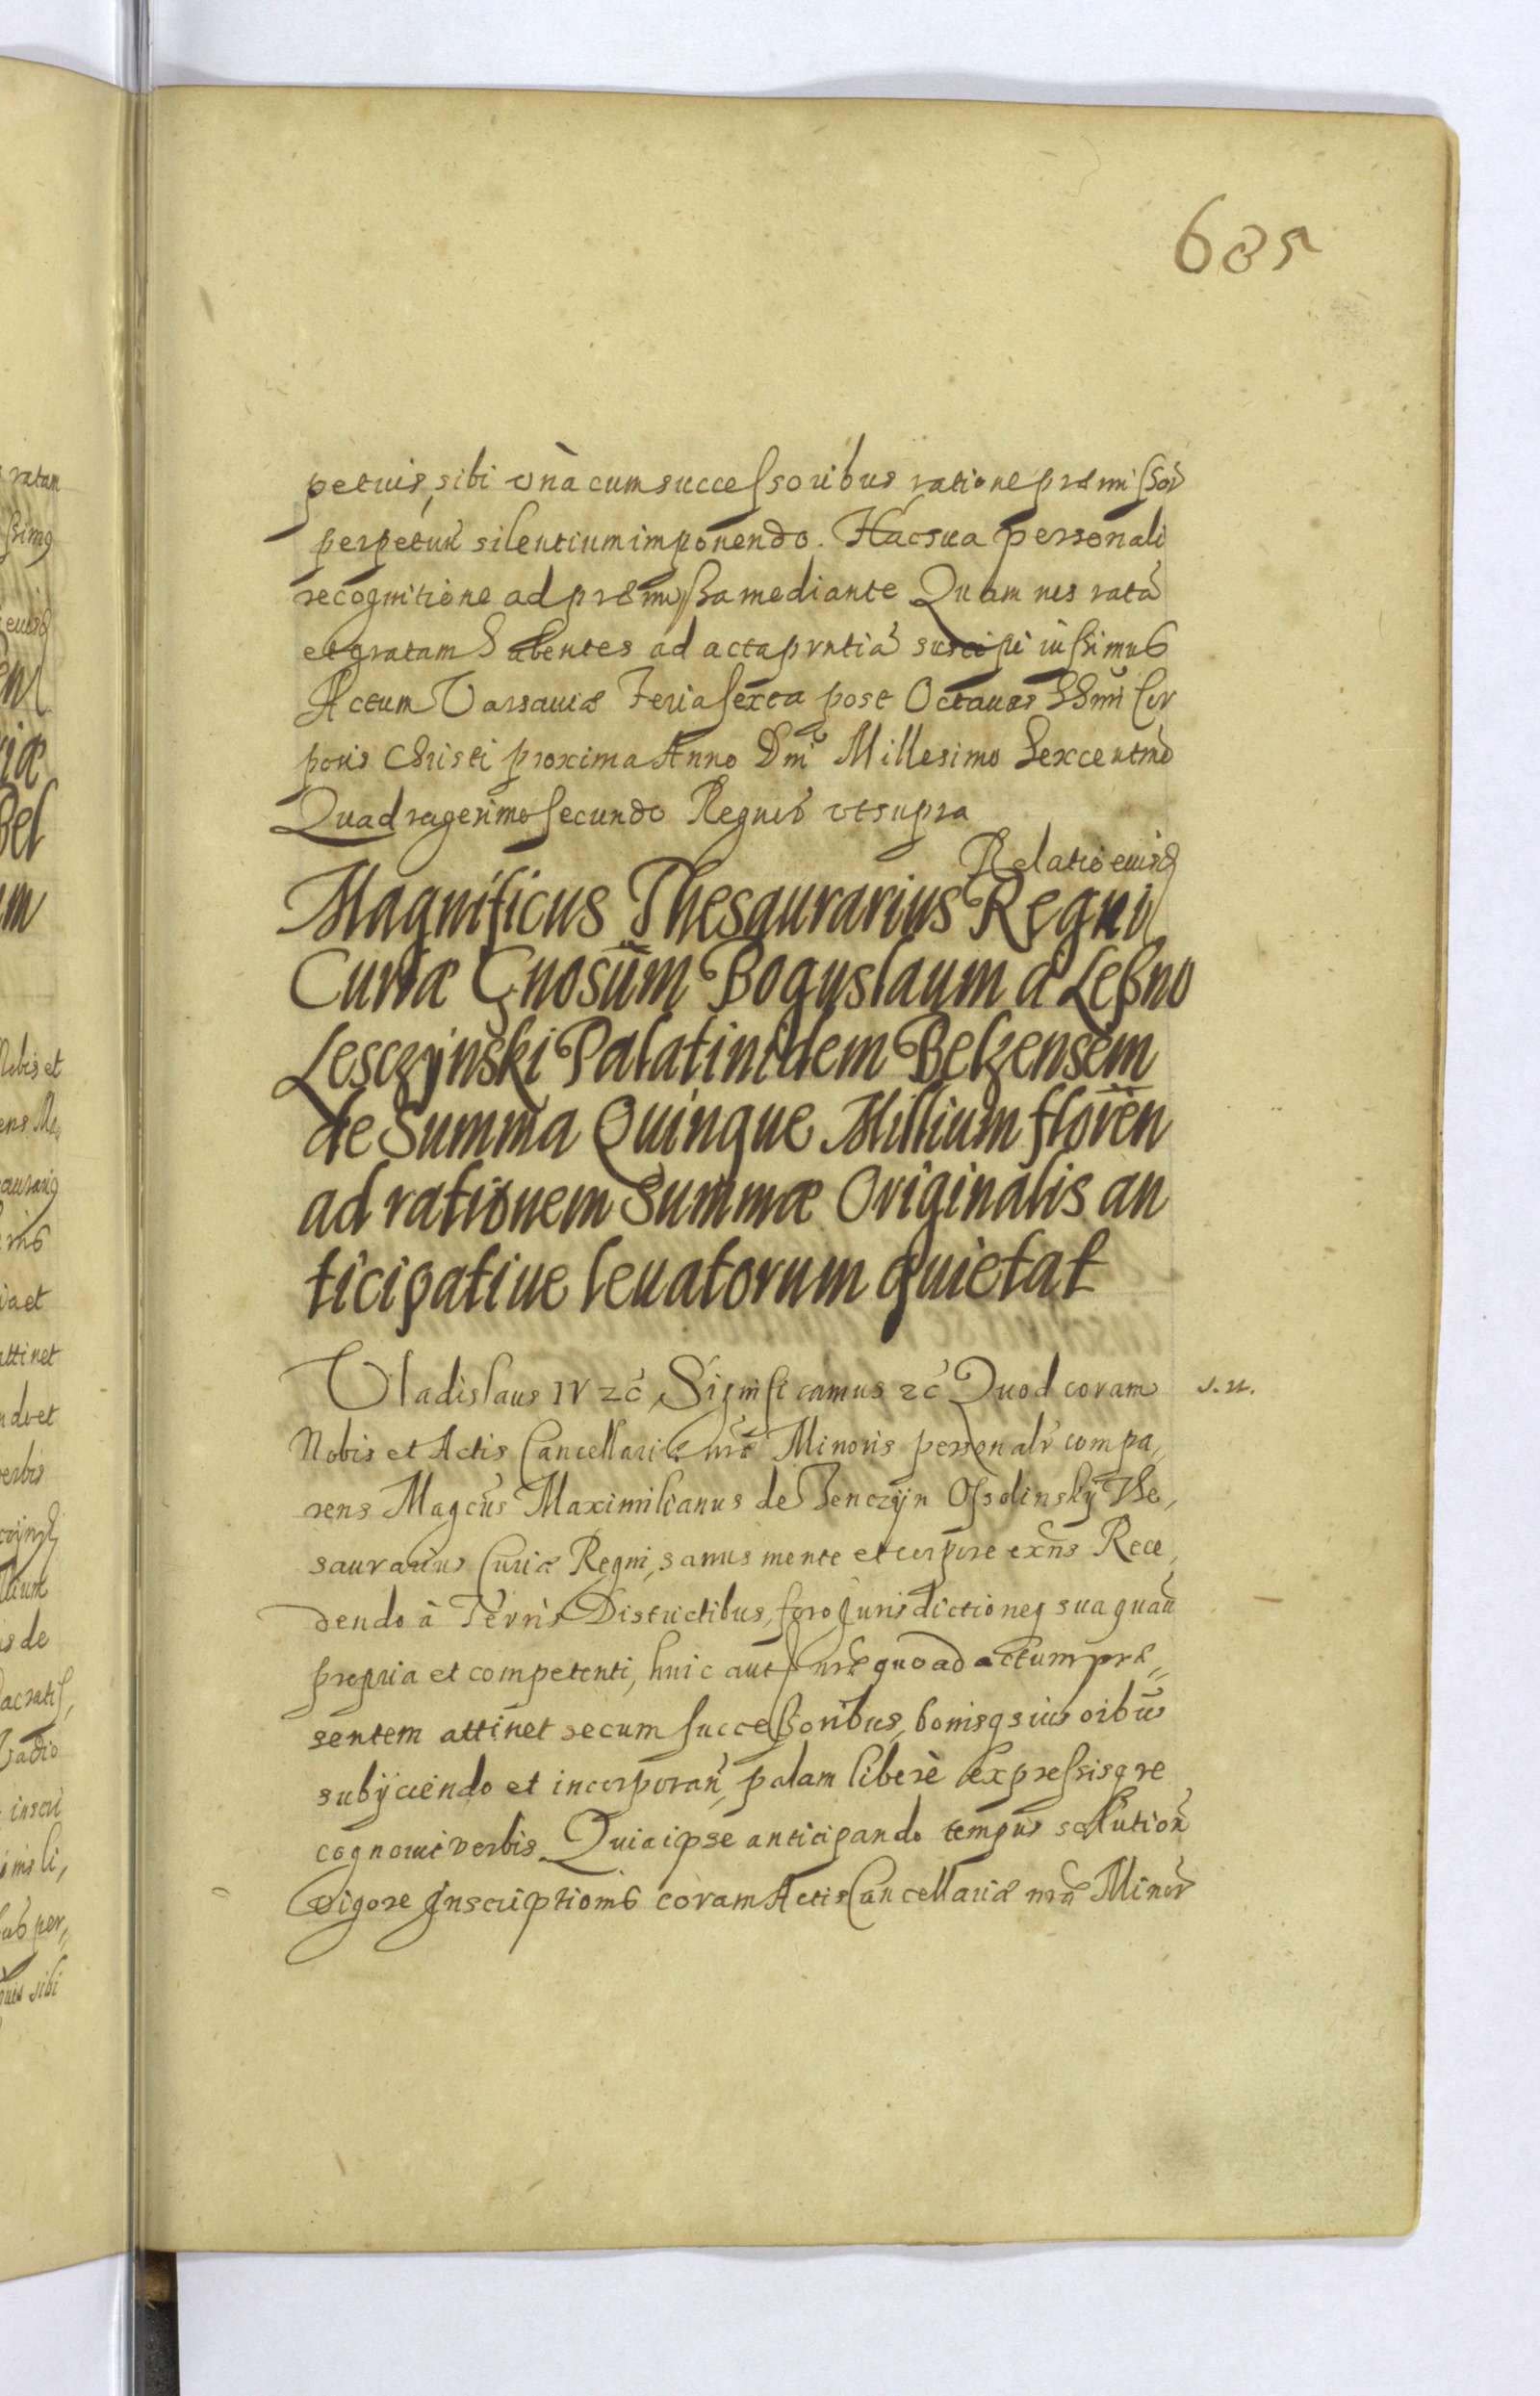 685
petuis, sibi vnà cum successoribus ratione præmissor
perpetuũ silentium imponendo. Hac sua personali
recognitione ad præmissa mediante Quam nos ratã
et gratam habentes ad acta pr̃ntia suscipi iussimus
Actum Varsauiæ Feria sexta post Octauas SSm̃i Cor
poris Christi proxima Anno Dm̃i Millesimo Sexcentmo
Quadragesimo secundo Regnor̃ vt supra
Relatio eiusd
Magnificus Thesaurarius Regni
Curiæ Gnosũm Boguslaum à Leßno
Lesczynski Palatinidem Belzensem
de Summa Quinque Millium floren̄
ad rationem Summæ Originalis an
ticipatiue leuatorum quietat
Vladislaus IV ꝛc̃, Significamus ꝛc̃ Quod coram
Nobis et Actis Cancellariæ nr̃æ Minoris personalr̃ compa,
rens Magcũs Maximilianus de Tenczyn Ossolinsky The,
saurarius Curiæ Regni, sanus mente et corpore exñs Rece,
dendo à Terris Districtibus, foro Jurisdictioneq sua quauis
propria et competenti, huic aut nr̃æ quo ad actum præ,,
sentem attinet secum successoribus, bonisq suis oĩbus
subijciendo et incorporan̄, palam liberè expressisq re
cognouit verbis. Quia ipse anticipando tempus solution̄
vigore Inscriptionis coram Actis Cancellariæ nr̃æ Minor̃